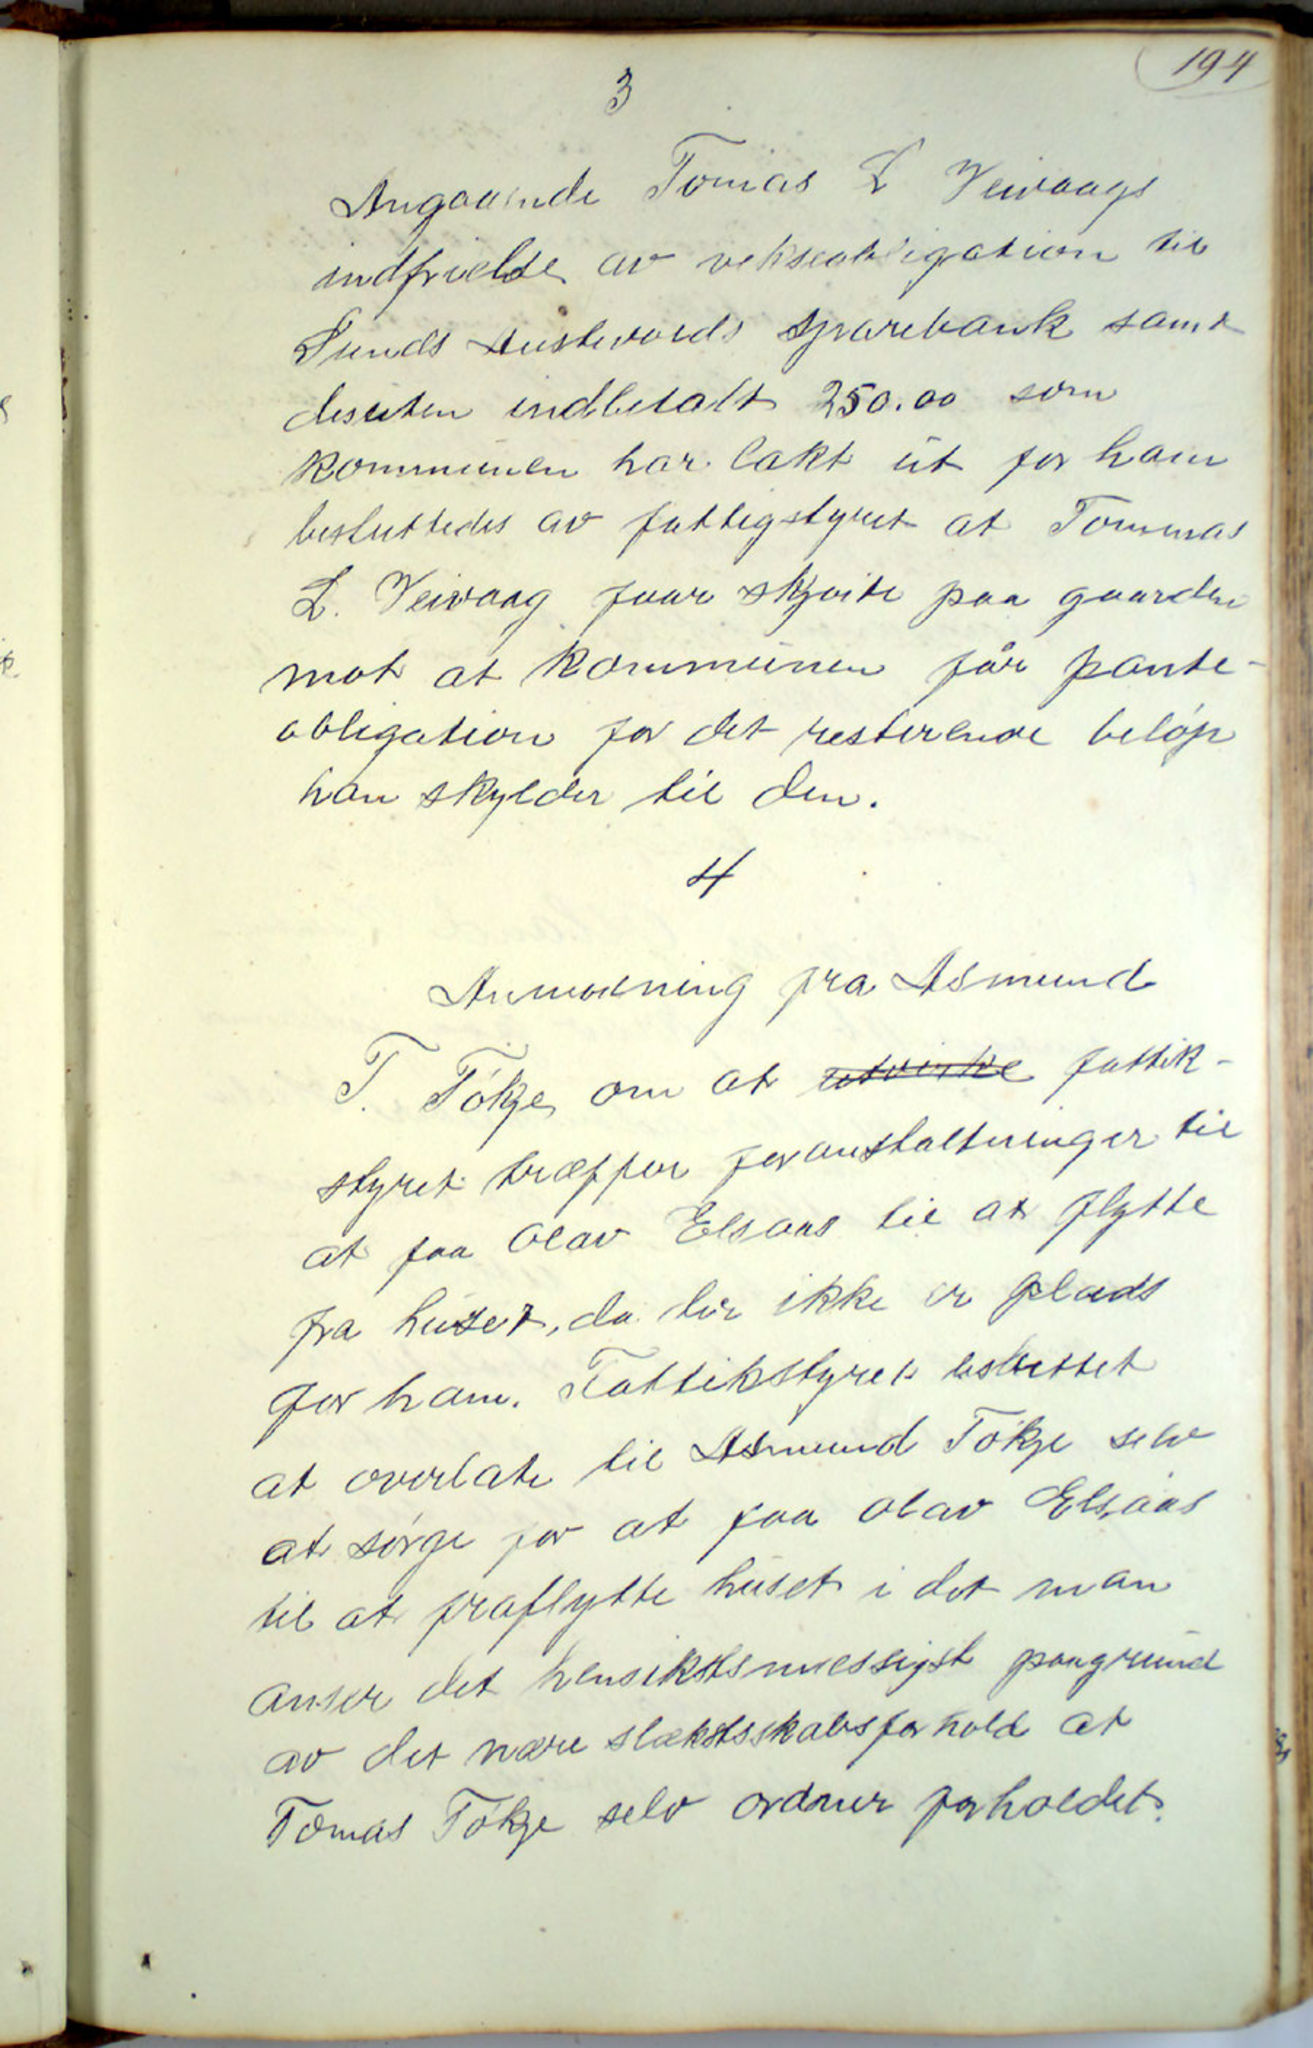 194
3
Angaaende Tomas L Veivaags
indfrielse av vekseobligation til
Sunds Austevolds Sparebank samt
desuten indbetalt 250.00 som
kommunen har lakt ut for ham
besluttedes av fattigstyret at Tommas
L. Veivaag faar skjøite paa gaarden
mot at kommunen får pante-
obligation for det resterende beløp
han skylder til den.
4
Anmodning fra Asmund
T. Føkje om at utvirke fattik-
styret træffer foranstaltninger til
at faa Olav Elsaas til at flytte
fra huset, da der ikke er plads
for ham. Fattikstyret besluttet
at overlate til Asmund Føkje selv
at sørge for at faa Olav Elsaas
til at fraflytte huset i det man
anser det hensiktsmessigst paagrund
av det nære slæktsskabsforhold at
Tomas Føkje selv ordner forholdet.